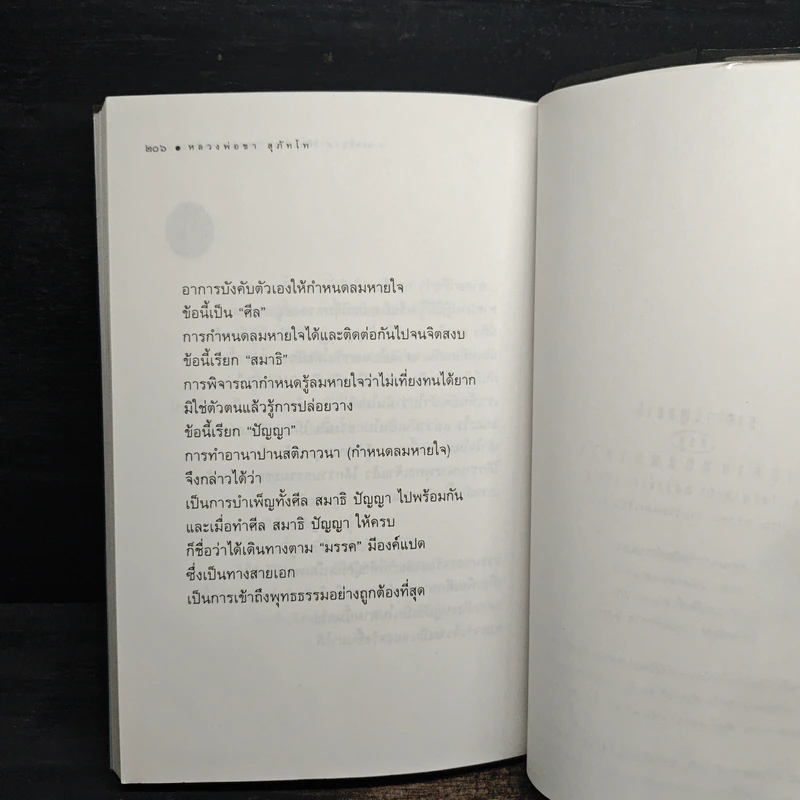 ๒๐๖ ● หลวงพ่อชา สุภัทโท
อาการบังคับตัวเองให้กำหนดลมหายใจ
ข้อนี้เป็น “ศีล”
การกำหนดลมหายใจได้และติดต่อกันไปจนจิตสงบ
ข้อนี้เรียก “สมาธิ”
การพิจารณากำหนดรู้ลมหายใจว่าไม่เที่ยงทนได้ยาก
มิใช่ตัวตนแล้วรู้การปล่อยวาง
ข้อนี้เรียก “ปัญญา”
การทำอานาปานสติภาวนา (กำหนดลมหายใจ)
จึงกล่าวได้ว่า
เป็นการบำเพ็ญทั้งศีล สมาธิ ปัญญา ไปพร้อมกัน
และเมื่อทำศีล สมาธิ ปัญญา ให้ครบ
ก็ชื่อว่าได้เดินทางตาม “มรรค” มีองค์แปด
ซึ่งเป็นทางสายเอก
เป็นการเข้าถึงพุทธธรรมอย่างถูกต้องที่สุด